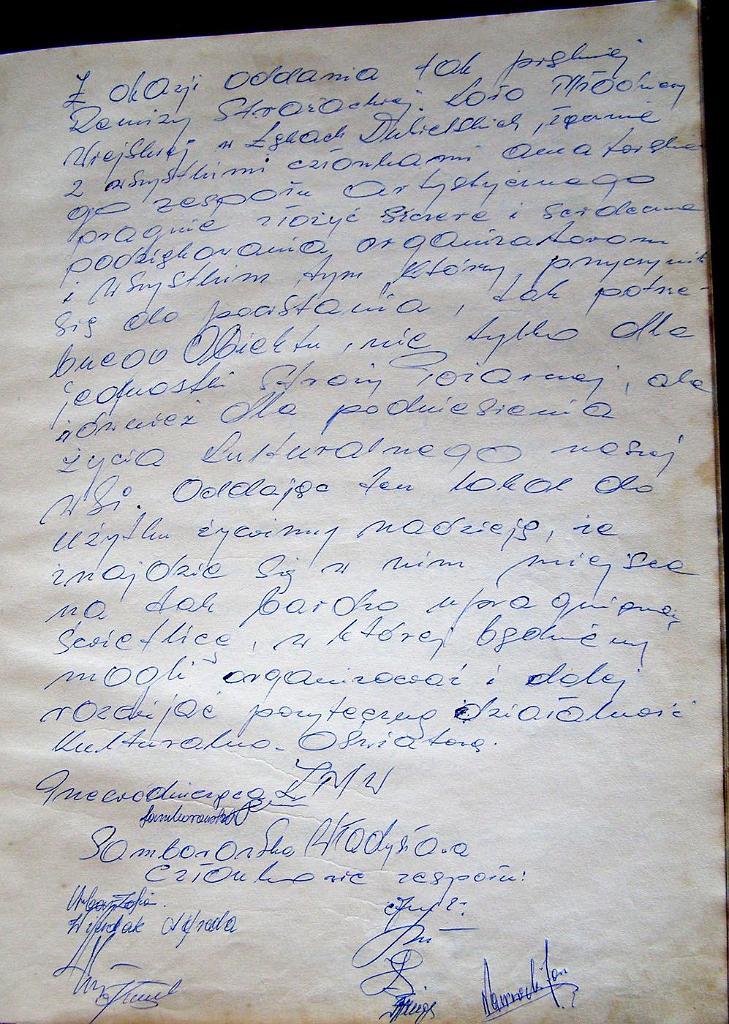 Z okazji oddania tak pięknej
Remizy Strażackiej. Koło Młodzieży
Wiejskiej w Łękach Dukielskich, łącznie
z wszystkimi członkami amatorskie
go zespołu artystycznego
pragnie złożyć szczere i serdeczne
podziękowania organizatorom
i wszystkim tym, którzy przyczynili
się do powstania, tak potrze-
bnego Obiektu, nie tylko dla
jednostki Straży Pożarnej, ale
również dla podniesienia
życia kulturalnego naszej
wsi. Oddając ten lokal do
użytku żywimy nadzieję, że
znajdzie się w nim miejsce
na tak bardzo upragnioną
świetlicę, w której będziemy
mogli organizować i dalej
rozwijać pożyteczną działalność
Kulturalno-Oświatową.
Przewodnicząca ZMW
Samborowska Władysława
Członkowie zespołu:
Urban Zofia
Nawrocki Jan